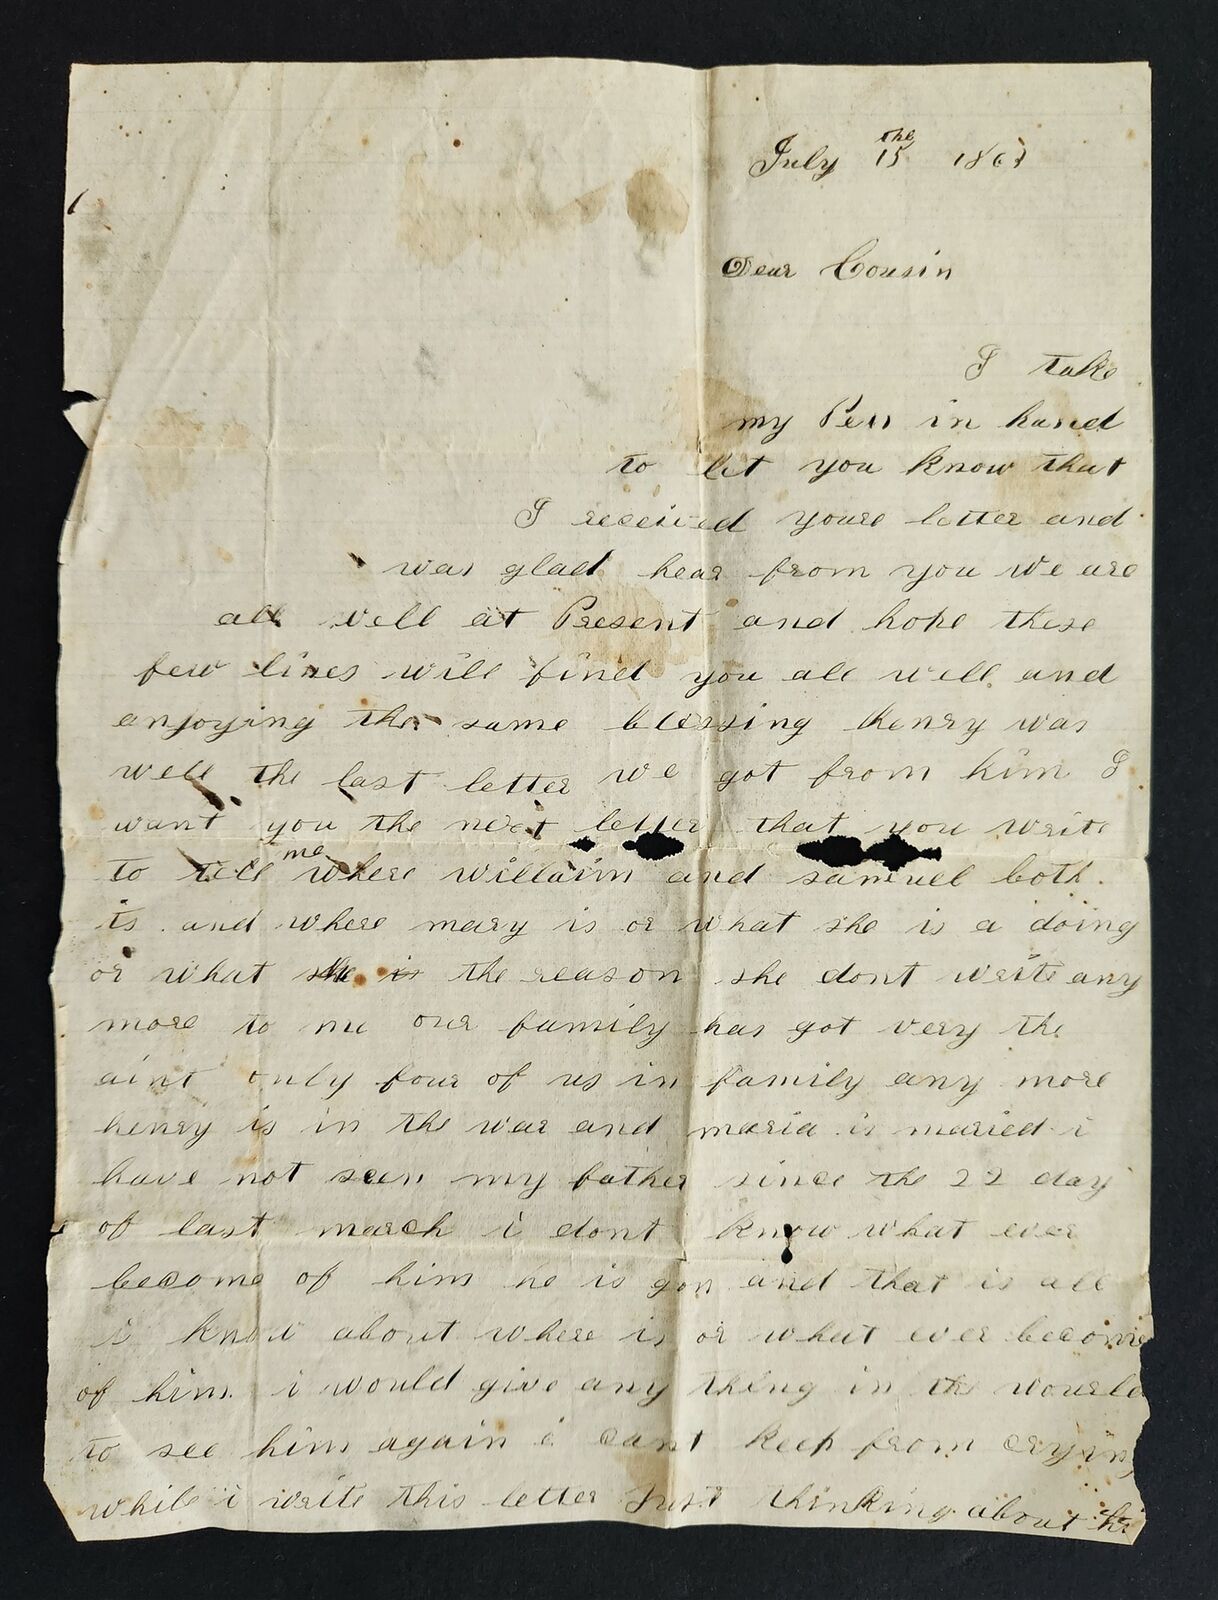 July 15 the 186
Dear Cousin
I take
my Pen in hand
to let you know that
I received youre letter and
was glad hear from you We are
all well at Present and hope these
few lines will find you all well and
enjoying the same blessing henry was
well the last letter we got from him I
want you the next letter that you write
to tell me where willaim and samuel both
is and where mary is or what she is a doing
or what the reason she dont write any
more to me our family has got very the
aint only four of us in family any more
henry is in the war and maria is maried i
have not seen my father since the 22 day
of last march i dont know what ever
become of him he is gon and that is all
i know about where is or what ever become
of him i would give any thing in the wourld
to see him again i cant keep from crying
while i write this letter Just thinking about hi